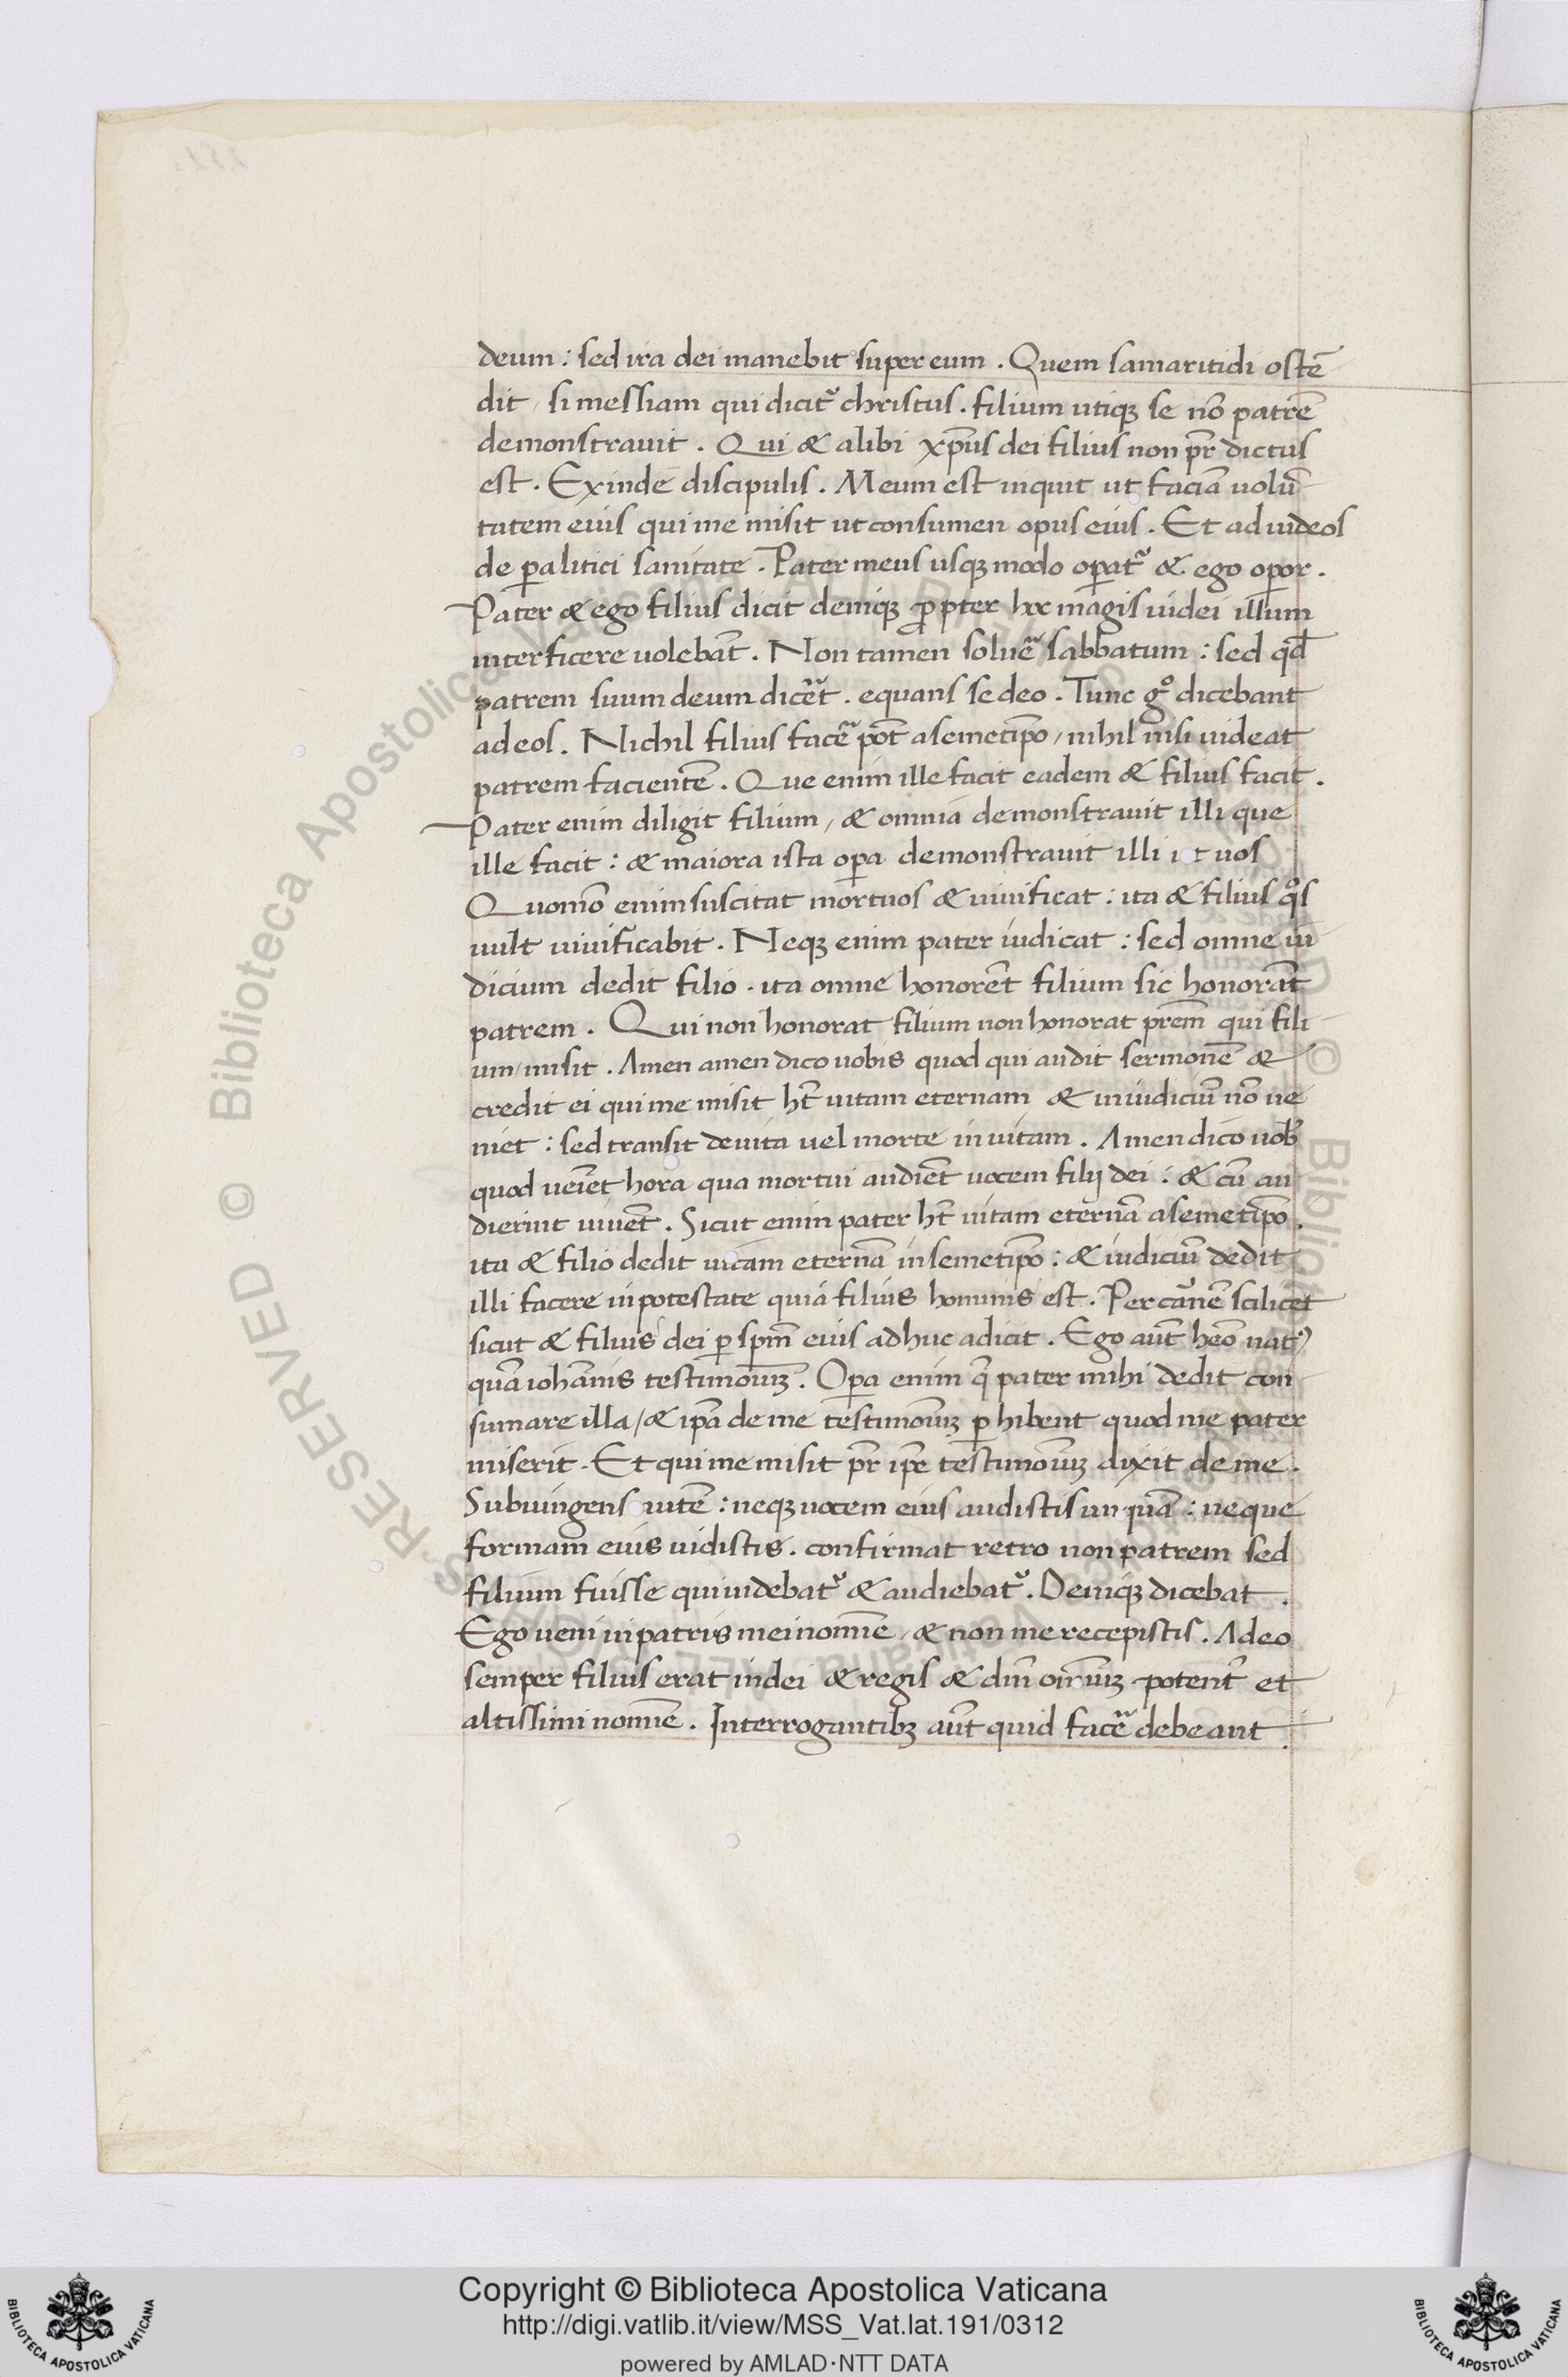 deum : sed ira dei manebit super eum . Quem samaritidi ostē
dit , si messiam qui dicit᷑ christus . filium utiqꝫ se nō patrē
demonstrauit . Qui & alibi xp̄us dei filius non pr̄ dictus
est . Exinde discipulis . Meum est inquit ut faciā uolū
tatem eius qui me misit ut consumen opus eius . Et ad iudeos
de ꝑalitici sanitate . Pater meus usqꝫ modo oꝑat᷑ & ego oꝑor .
Pater & ego filius dicit deniqꝫ ꝓpter hoc magis iudei illum
interficere uolebāt . Non tamen soluē sabbatum : sed qđ
patrem suum deum dicēt . equans se deo . Tunc gͦ dicebant
ad eos . Nichil filius facē pōt a semetip̄o , nihil nisi uideat
patrem facientē . Que enim ille facit eadem & filius facit .
Pater enim diligit filium , & omnia demonstrauit illi que
ille facit : & maiora ista oꝑa demonstrauit illi ut uos
Quomō enim suscitat mortuos & uiuificat : ita & filius qͦs
uult uiuificabit . Neqꝫ enim pater iudicat : sed omne iu
dicium dedit filio . ita omne honorēt filium sic honorāt
patrem . Qui non honorat filium non honorat prēm qui fili
um / misit . Amen amen dico uobis quod qui audit sermonē &
credit ei qui me misit hēt uitam eternam & in iudiciū nō ue
niet : sed transit de uita uel morte in uitam . Amen dico uob̄
quod ueīet hora qua mortui audiēt uocem filij dei : & cū au
dierint uiuēt . Sicut enim pater hēt uitam eternā a semetip̄o .
ita & filio dedit uitam eternā in semetip̄o : & iudiciū dedit
illi facere in potestate quia filius hominis est . Per carnē scilicet
sicut & filius dei ꝑ spm̄ eius adhuc adicit . Ego aūt heō nat᷒
quā iohānis testimoīuꝫ . Oꝑa enim q̄ pater mihi dedit con
sumare illa / & ip̄a de me testimoīuꝫ ꝑhibent quod me pater
miserit . Et qui me misit pr̄ ip̄e testimoīuꝫ dixit de me .
Subiungens autē : neqꝫ uocem eius audistis unquā : neque
formam eius uidistis . confirmat retro non patrem sed
filium fuisse qui uidebat᷑ & audiebat᷑ . Deniqꝫ dicebat .
Ego ueni in patris mei nomīe , & non me recepistis . Adeo
semper filius erat in dei & regis & dn̄i oīuꝫ potent᷑ et
altissimi nomīe . Interrogantibꝫ aūt quid facē debeant .
Copyright © Biblioteca Apostolica Vaticana
http://digi.vatlib.it/view/MSS_Vat.lat.191/0312
powered by AMLAD·NTT DATA